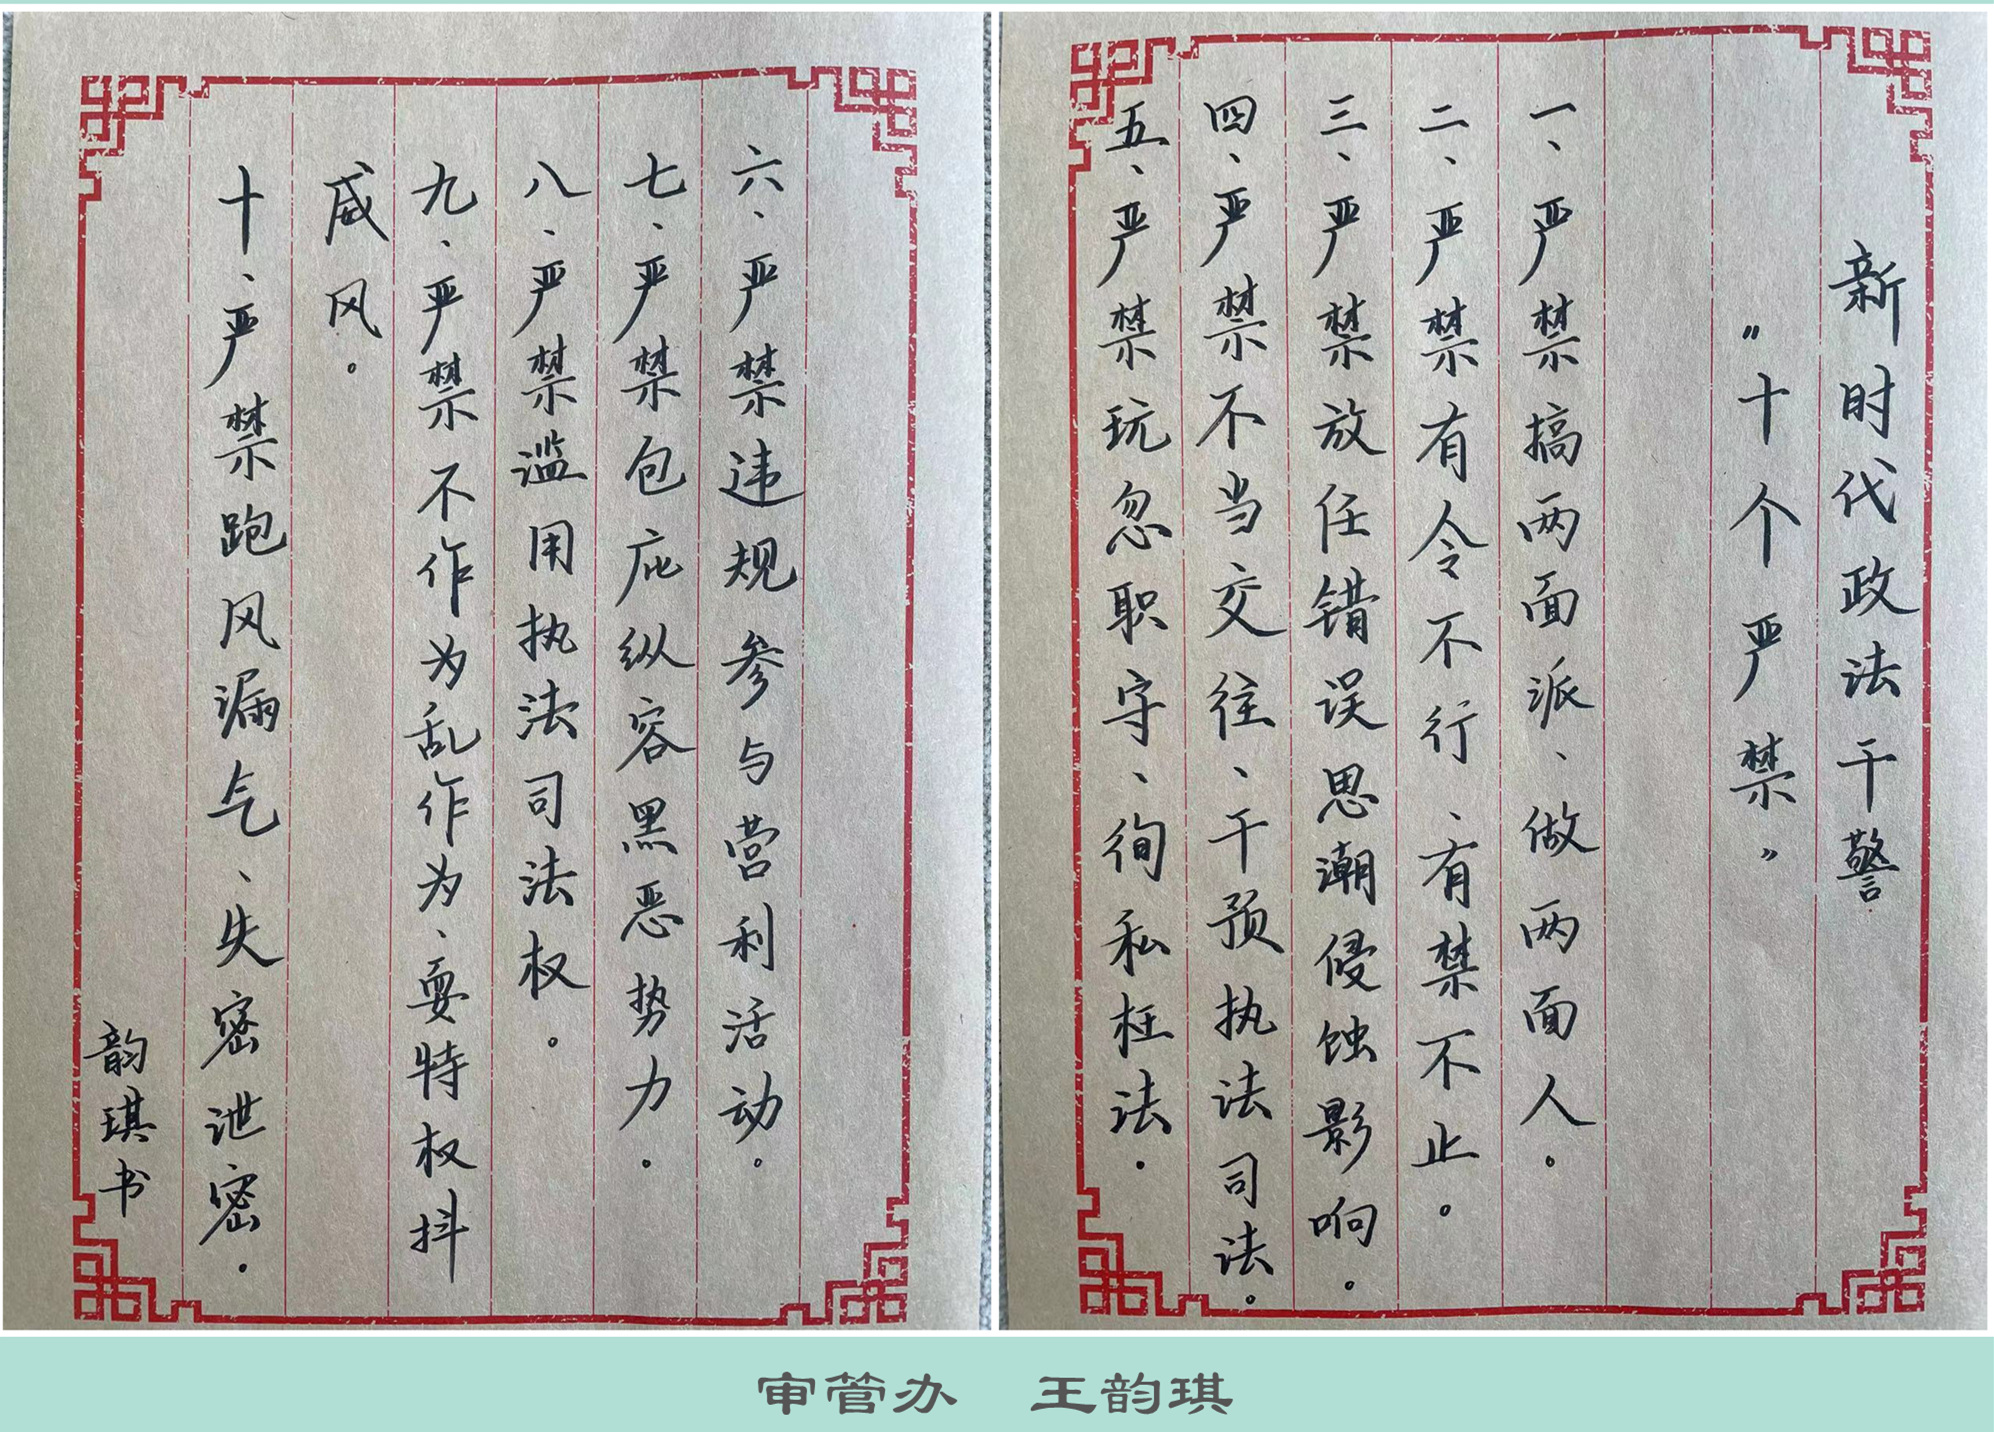 新时代政法干警
“十个严禁”
一、严禁搞两面派、做两面人。
二、严禁有令不行、有禁不止。
三、严禁放任错误思潮侵蚀影响。
四、严禁不当交往、干预执法司法。
五、严禁玩忽职守、徇私枉法。
六、严禁违规参与营利活动。
七、严禁包庇纵容黑恶势力。
八、严禁滥用执法司法权。
九、严禁不作为乱作为、耍特权抖
威风。
十、严禁跑风漏气、失密泄密。
韵琪书
审管办 王韵琪